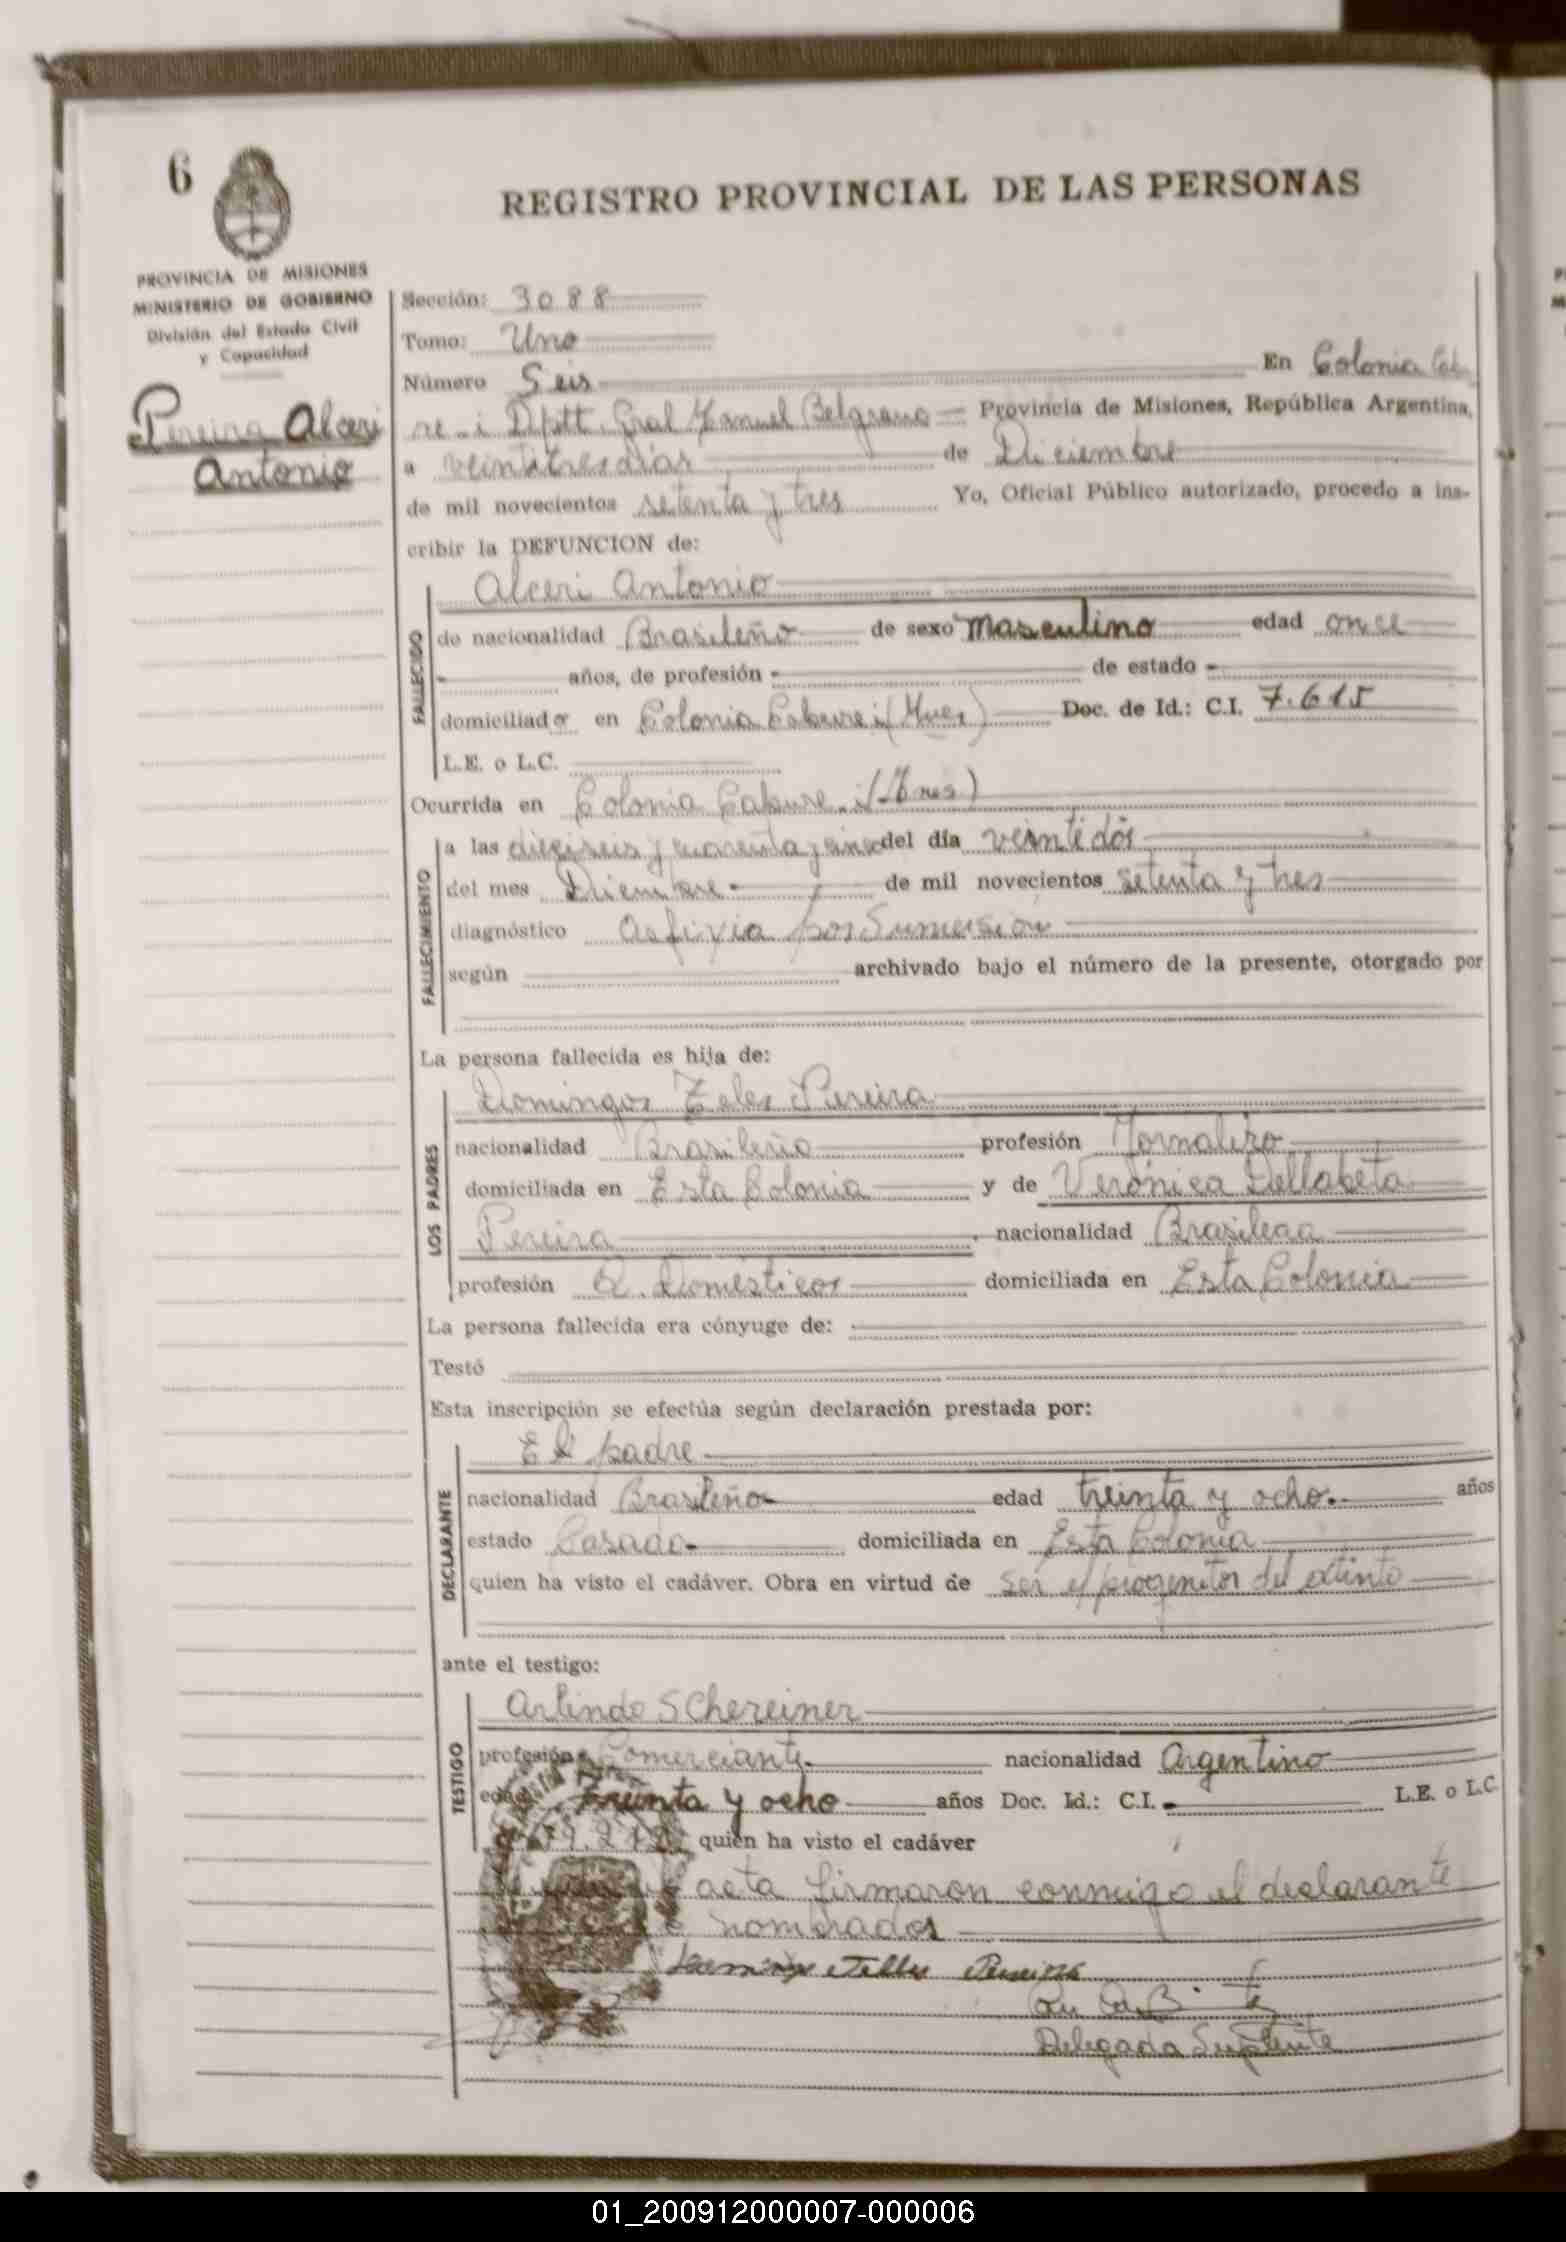 6
REGISTRO PROVINCIAL DE LAS PERSONAS
PROVINCIA DE MISIONES
MINISTERIO DE GOBIERNO
División del Estado Civil
y Capacidad
Pereira Alceri
Antonio
Sección: 3088
Tomo: Uno
Número Seis En Colonia Cabu
re-i Dptt. Gral Manuel Belgrano Provincia de Misiones, República Argentina,
a veintitres dias de Diciembre
de mil novecientos setenta y tres Yo, Oficial Público autorizado, procedo a ins-
cribir la DEFUNCION de:
Alceri Antonio
FALLECIDO
de nacionalidad Brasileño de sexo Masculino edad once
años, de profesión - de estado -
domiciliado en Colonia Cabure-i (Mnes) Doc. de Id.: C.I. 7.615
L.E. o L.C.
Ocurrida en Colonia Cabure-i (Mnes)
FALLECIMIENTO
a las dieciseis y cuarenta y cinco del día veintidós
del mes Diciembre de mil novecientos setenta y tres
diagnóstico Asfixia por Sumersión
según archivado bajo el número de la presente, otorgado por
La persona fallecida es hija de:
LOS PADRES
Domingos Teles Pereira
nacionalidad Brasileño profesión Jornalero
domiciliada en Esta Colonia y de Verónica Dellabeta
Pereira nacionalidad Brasilera
profesión Q. Domésticos domiciliada en Esta Colonia
La persona fallecida era cónyuge de:
Testó
Esta inscripción se efectúa según declaración prestada por:
DECLARANTE
El padre
nacionalidad Brasileño edad treinta y ocho años
estado Casado domiciliada en Esta Colonia
quien ha visto el cadáver. Obra en virtud de ser el progenitor del extinto
ante el testigo:
TESTIGO
Arlindo SChereiner
profesión Comerciante nacionalidad Argentino
edad Treinta y ocho años Doc. Id.: C.I. L.E. o L.C
quien ha visto el cadáver
acta firmaron conmigo el declarante
nombrados
Pereira
Delegada Suplente
01_200912000007-000006